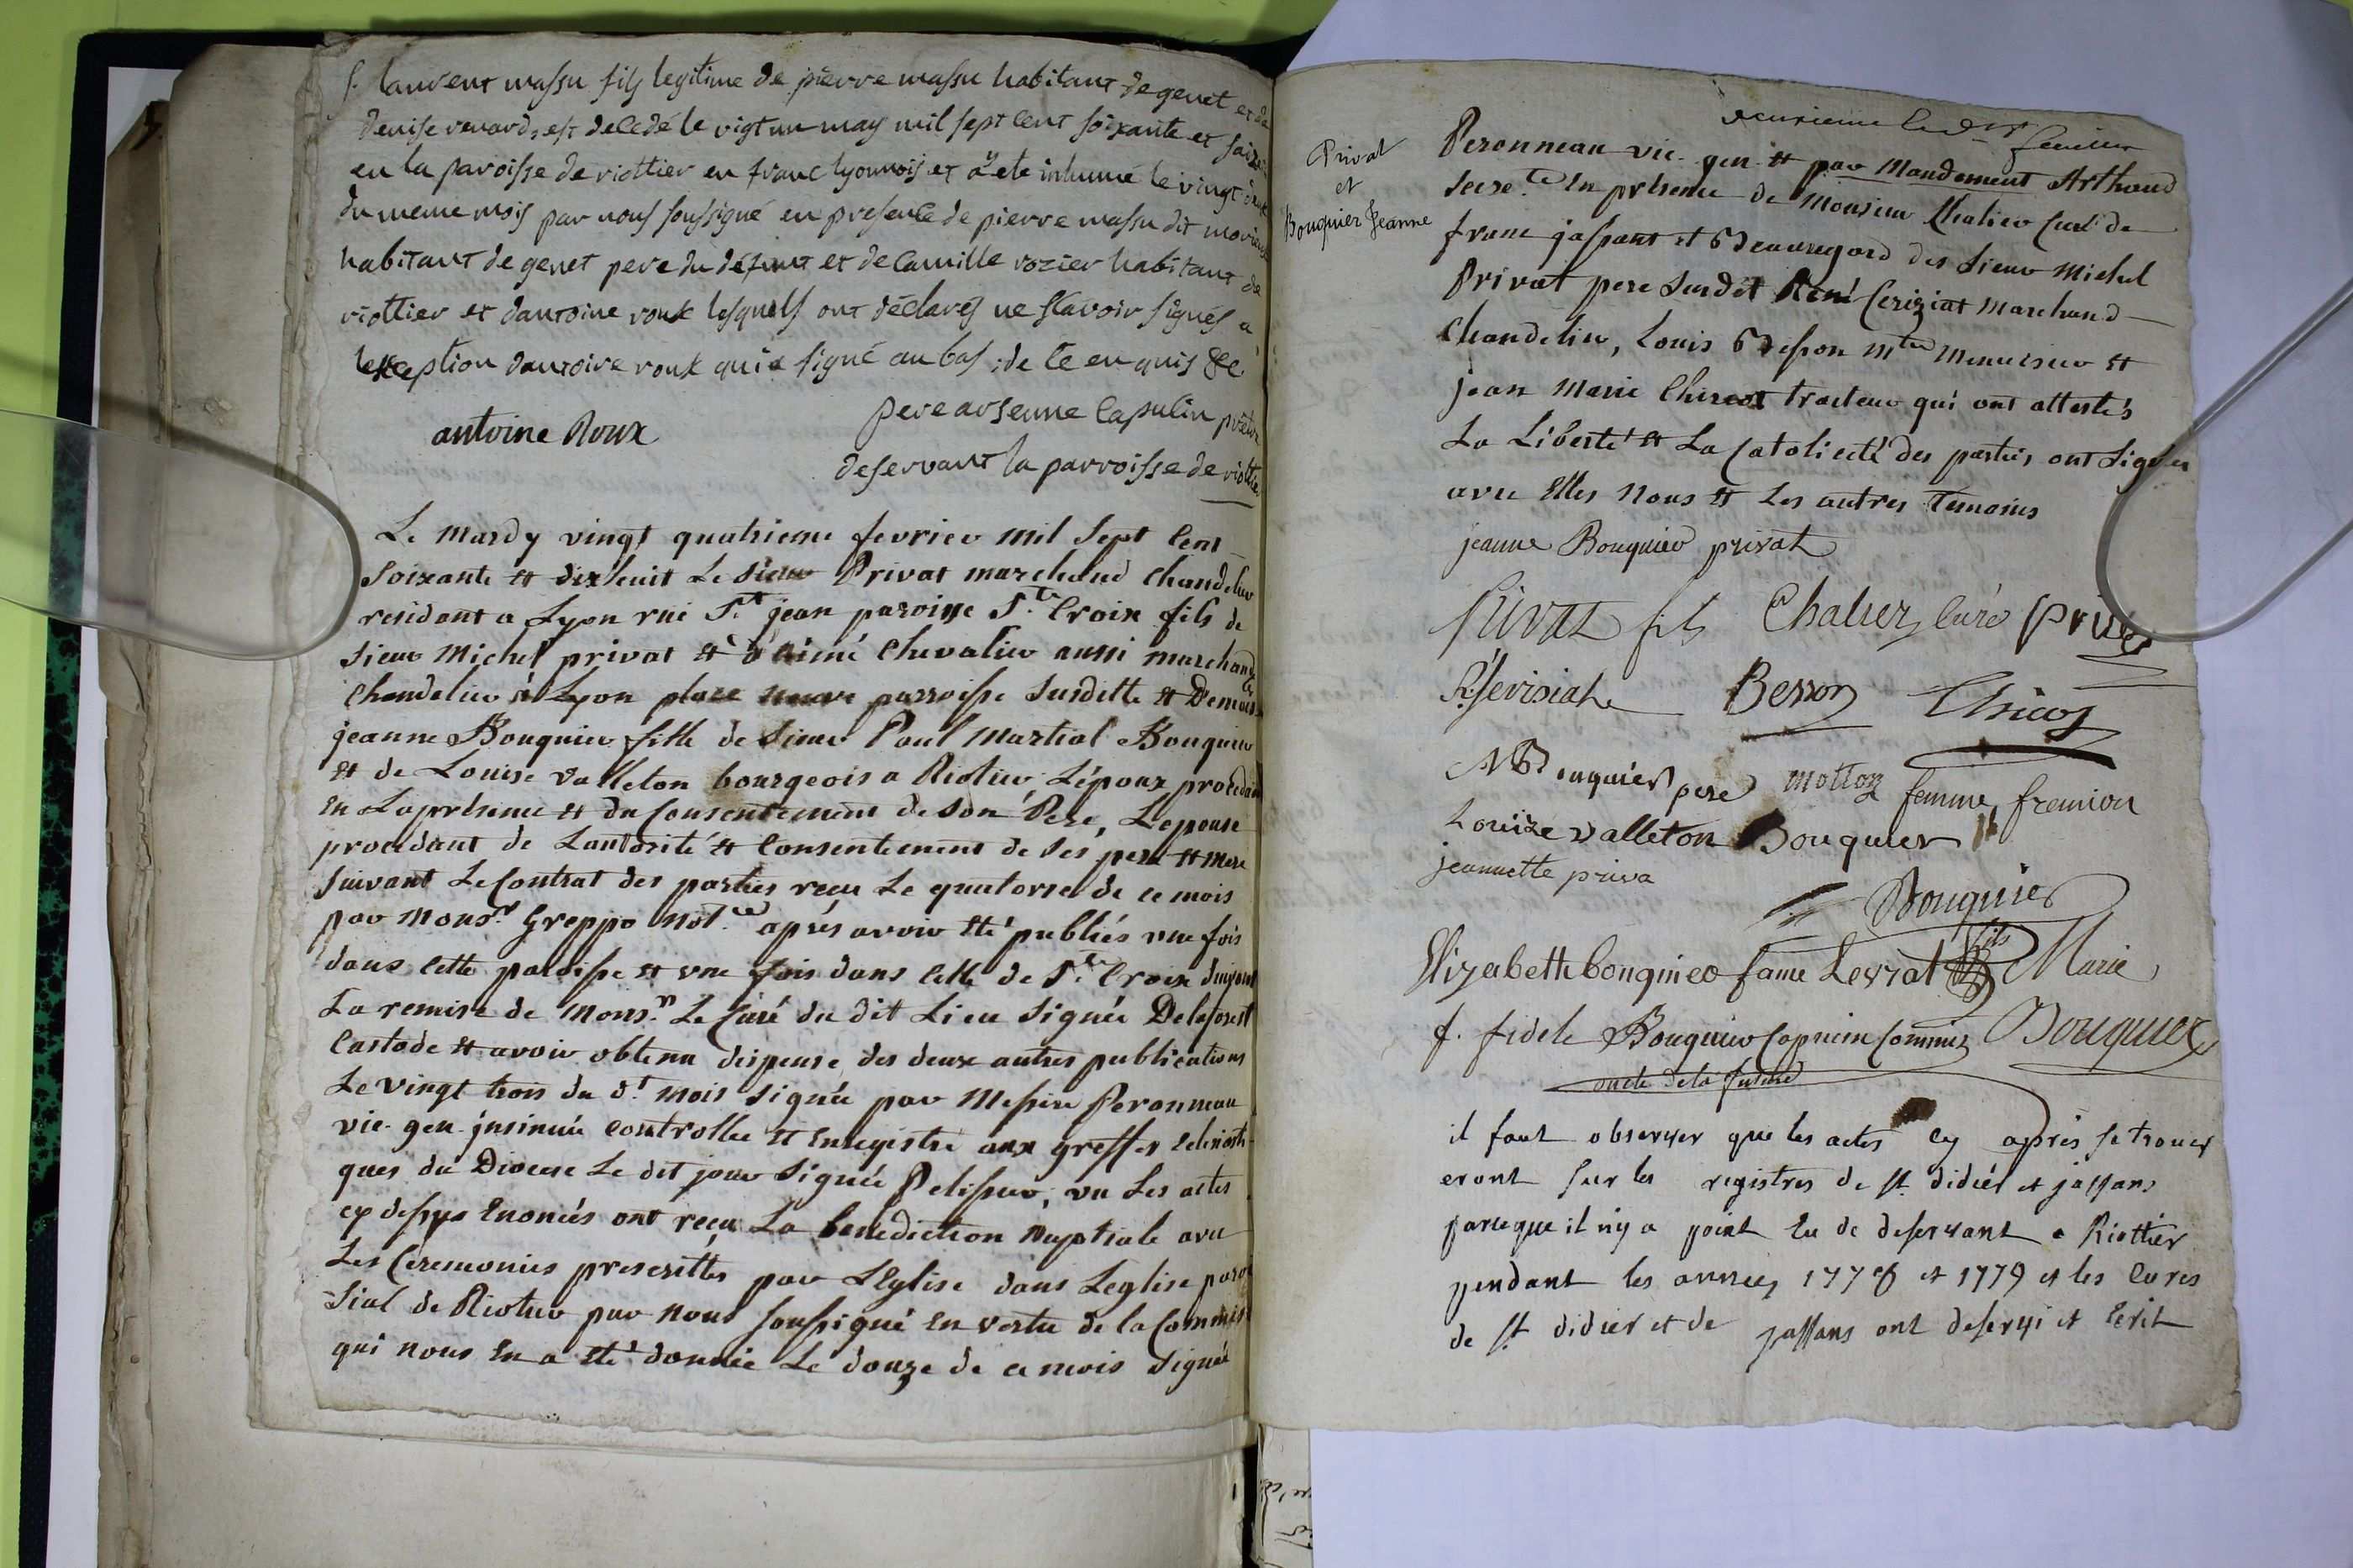 S. laurent massu fils legitime de pierre massu habitant de genet et de
denise renard, est decedé le vigt un may mil sept cent soixante et saize
en la paroisse de riottier en franc lyonnois et a y ete inhumé le vingt deux
du meme mois par nous soussigné en presence de pierre massu dit
habitant de genet pere du défunt et de camille rozier habitant de
riottier et dantoine roux lesquels ont déclarés ne scavoir signés a
lexception dantoine roux qui a signé au bas ; de ce enquis &c
pere arsenne capulin
antoine Roux
deservant la parroisse de riottier
Le mardy vingt quatrieme fevrier mil Sept Cent
Soixante et dixhuit Le Sieur Privat marchand Chandelier
residant a Lyon rue St. jean paroisse Ste. Croix fils de
Sieur Michel privat et d'Aimé Chevalier aussi marchand
Chandelier à Lyon place neuve parroisse Susditte et Demoiselle
jeanne Bouquier fille de Sieur Paul Martial Bouquier
et de Louise Valleton bourgeois a Riotier, L'époux procedant
En La presence et du Consentement de Son Pere, L'epouse
procedant de L'autorité et Consentement de Ses pere et Mere
Suivant Le Contrat des parties recu Le quatorze de ce mois
par Monsr. Greppo Notre après avoir Eté publiés une fois
dans cette paroisse et une fois dans celle de Ste. Croix Suivant
La remise de Monsr. Le Curé du dit Lieu Signée Delaforest
Custode et avoir obtenu dispense des deux autres publications
Le vingt trois du dt. mois Signée par Messire Peronneau
vic. gen. insinuée controllée et Enregistré aux greffes Eclesiasti-
ques du Diocese Le dit jour Signée Pelissier, vu Les actes
cy dessus Enoncés ont reçu La benediction Nuptiale avec
Les Ceremonies prescrittes par L'Eglise dans Leglise paroi
Sial de Riotier par Nous Soussigné En vertu de la Commission
qui nous En a Eté donnée Le douze de ce mois Signée
Privat
et
Bouquier Jeanne
Peronneau vic. gen. et par Mandement Arthaud
Secre. te En presence de Monsieur Chalier Curé de
franc jassant et Beauregard des Sieur Michel
Privat pere Susdit René Ceriziat Marchand
Chandelier, Louis Besson Mtre Menuisier et
jean Marie Chicot traiteur qui ont attestés
La Liberté et La Catolicité des parties ont Signés
avec Elles Nous et Les autres Temoins
jeanne Bouquier privat
Privat fils Chalier, Curé Privat
R. Serisiat Besson Chicot
M Bouquier pere motton femme fremion
Louize Valleton Bouquier
jeannette priva
Bouquier fils
Elizabette bouquier fame Levrat Marie
f. fidele Bouquier Capucin Commis Bouquier
oncle de la future
il faut observer que les actes cy apres se trouv
eront sur les registres de St. didier et jassans
parceque il n'y a point Eu de desservant a Riottier
pendant les années 1778 et 1779 et les Curés
de St. didier et de jassans ont deservi et Ecrit